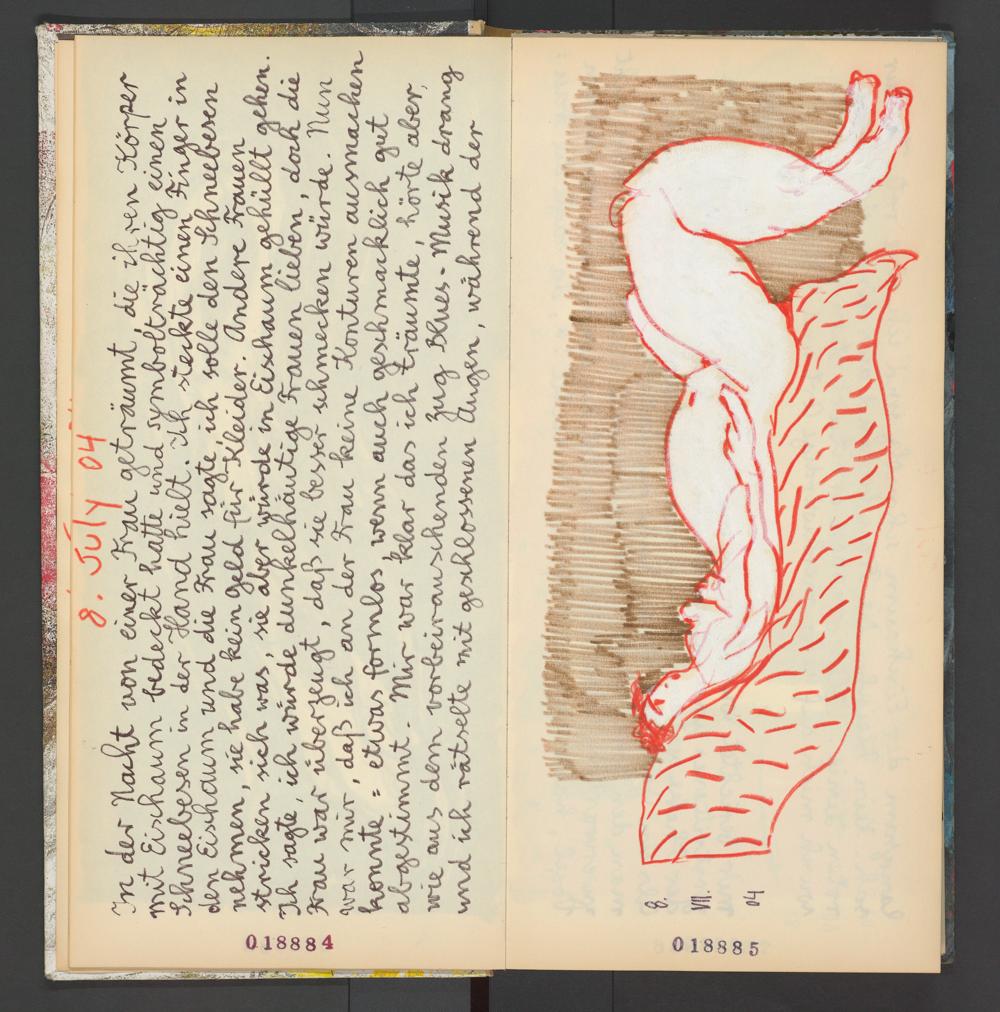 8. July 04
In der Nacht von einer Frau geträumt, die ihren Körper
mit Eischaum bedeckt hatte und symbolträchtig einen
Schneebesen in der Hand hielt. Ich steckte einen Finger in
den Eischaum und die Frau sagte ich solle den Schneebesen
nehmen, sie habe kein Geld für Kleider. Andere Frauen
stricken sich was, sie aber würde in Eischaum gehüllt gehen.
Ich sagte, ich würde dunkelhäutige Frauen lieben, doch die
Frau war überzeugt, daß sie besser schmecken würde. Nun
war mir, daß ich an der Frau keine Konturen ausmachen
konnte = etwas formlos, wenn auch geschmacklich gut
abgestimmt. Mir war klar das ich träumte, hörte aber,
wie aus dem vorbeirauschenden Zug Blues-Musik drang
und ich rätselte mit geschlossenen Augen, während der
018884
8.
VII.
04
018885